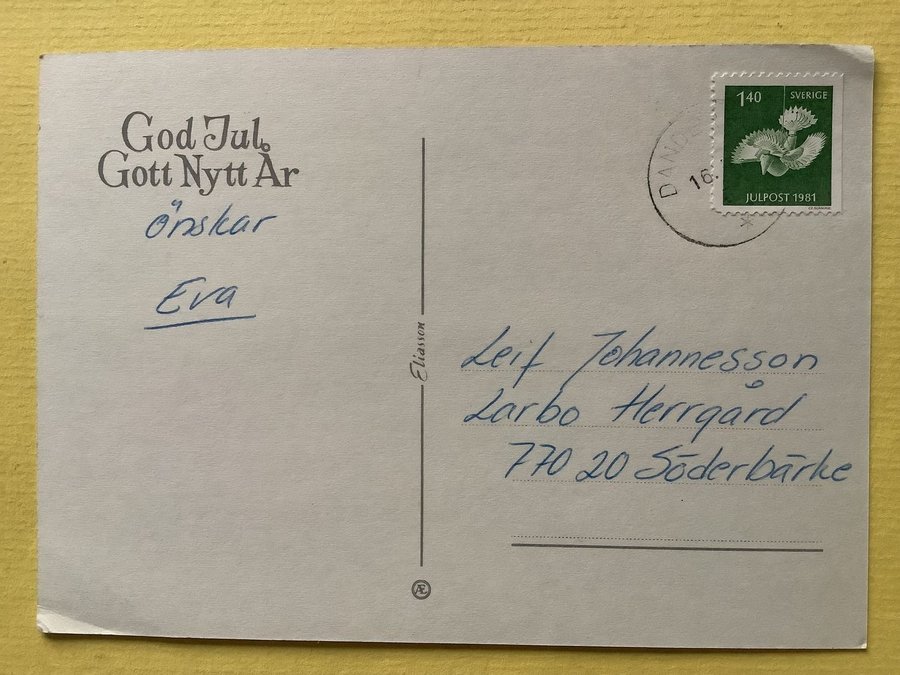 God Jul,
Gott Nytt År
önskar
Eva
Eliasson
Æ
1 40
SVERIGE
JULPOST 1981
16.
Leif Johannesson
Larbo Herrgård
770 20 Söderbärke